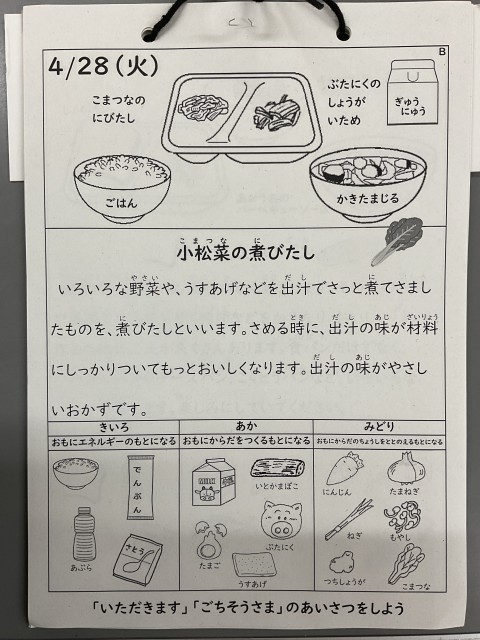 B
4/28(火)
こまつなの
にびたし
ぶたにくの
しょうが
いため
ぎゅう
にゅう
ごはん
かきたまじる
小松菜の煮びたし
いろいろな野菜や、うすあげなどを出汁でさっと煮てさまし
たものを、煮びたしといいます。さめる時に、出汁の味が材料
にしっかりついてもっとおいしくなります。出汁の味がやさし
いおかずです。
きいろ
おもにエネルギーのもとになる
でんぷん
あぶら
さとう
あか
おもにからだをつくるもとになる
いとかまぼこ
ぶたにく
たまご
うすあげ
みどり
おもにからだのちょうしをととのえるもとになる
にんじん
たまねぎ
ねぎ
もやし
つちしょうが
こまつな
「いただきます」「ごちそうさま」のあいさつをしよう